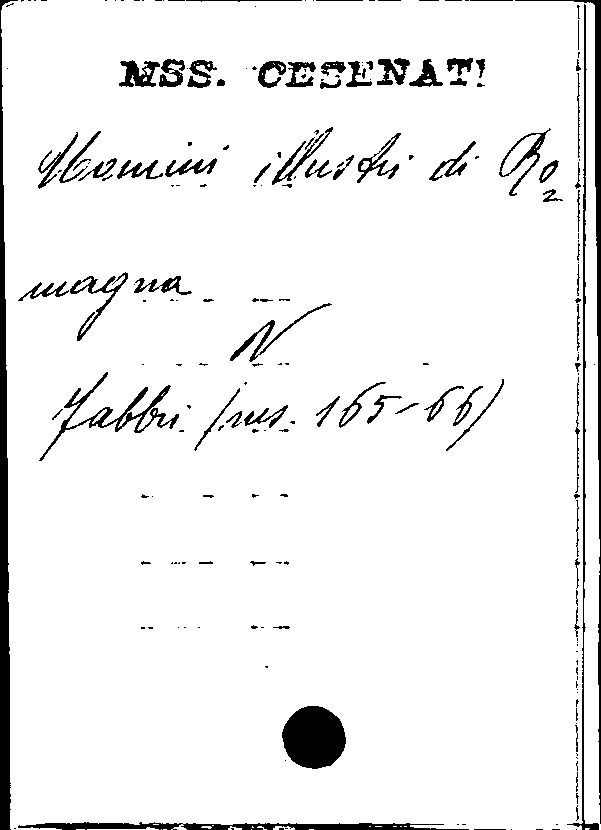 MSS. CESENATI
Uomini illustri di Ro=
magna
N
Fabbri (ms. 165-66)